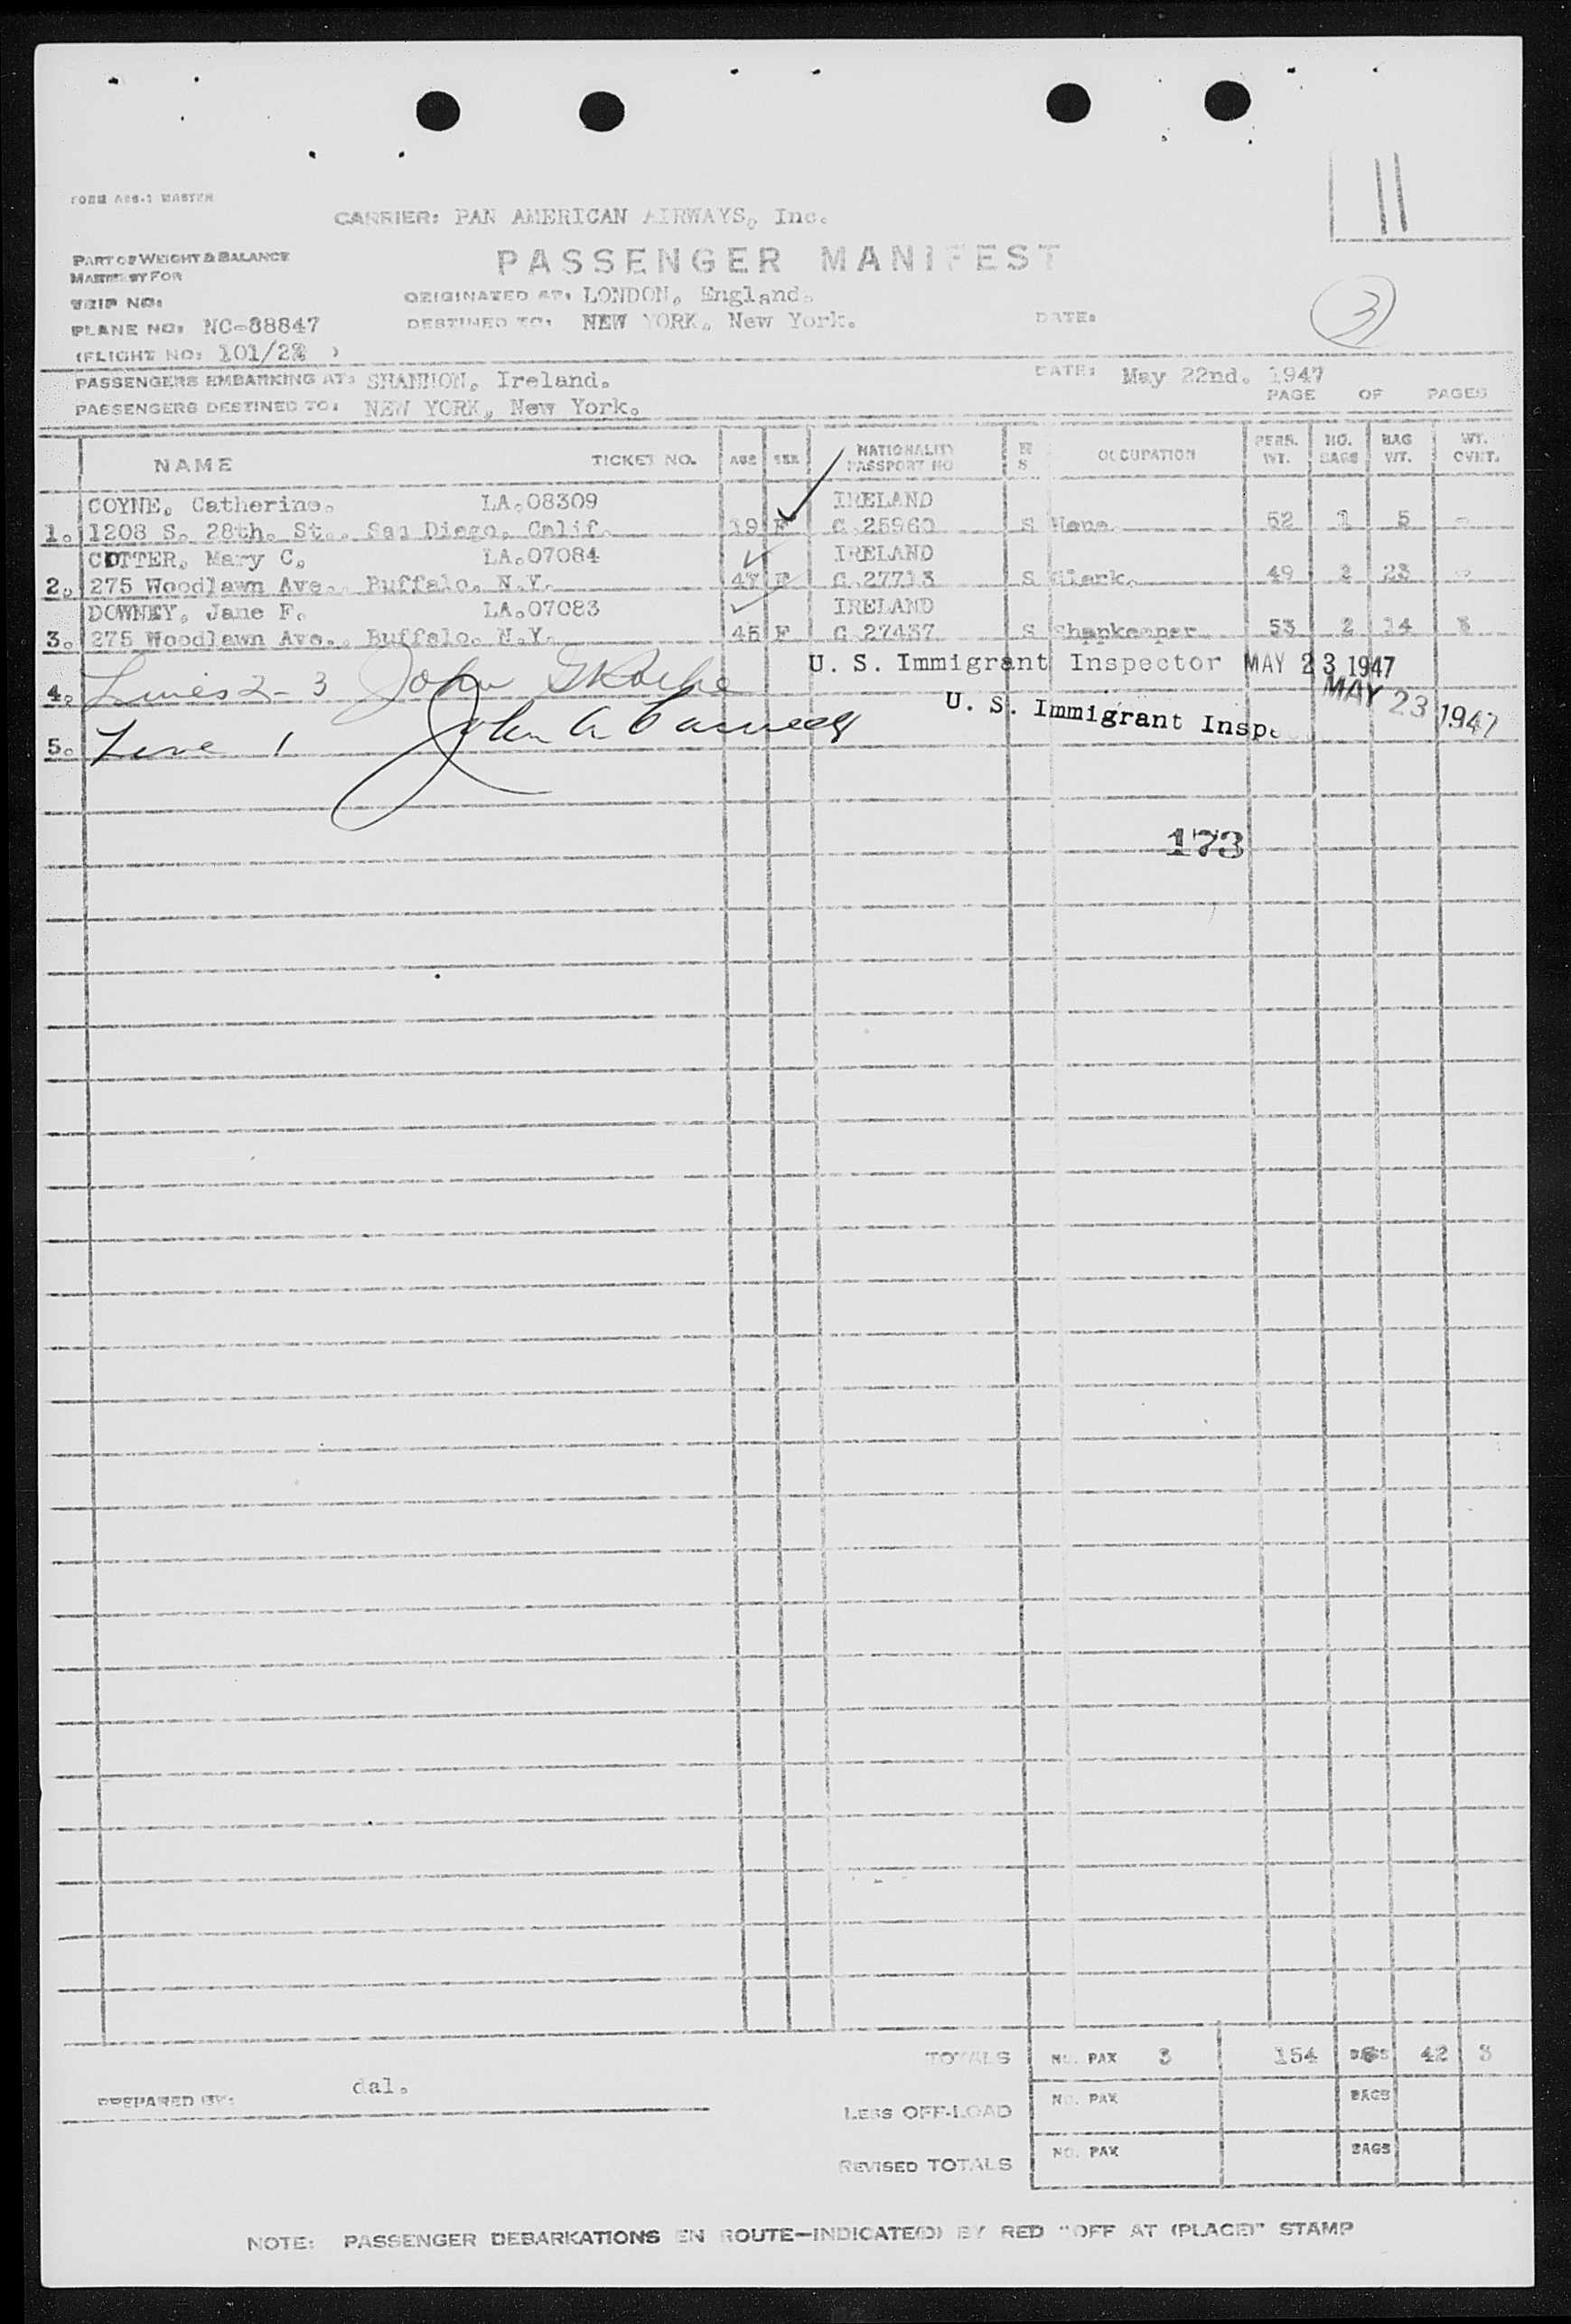 FORM ACS-1 MASTER
11
CARRIER: PAN AMERICAN AIRWAYS, Inc.
PART OF WEIGHT & BALANCE
MANIFEST FOR
PASSENGER MANIFEST
TRIP NO:
ORIGINATED AT: LONDON, England.
3
PLANE NO: NC-88847
DESTINED TO: NEW YORK, New York.
DATE:
(FLIGHT NO: 101/22 )
PASSENGERS EMBARKING AT: SHANNON, Ireland.
DATE: May 22nd. 1947
PASSENGERS DESTINED TO: NEW YORK, New York.
PAGE OF PAGES
NAME TICKET NO. AGE SEX NATIONALITY PASSPORT NO M S OCCUPATION PERS. WT. NO. BAGS BAG WT. WT. OVHT.
COYNE, Catherine. LA.08309 IRELAND
1. 1208 S. 28th. St., San Diego, Calif. 19 F C.25960 S 52 1 5 -
COTTER, Mary C. LA.07084 IRELAND
2. 275 Woodlawn Ave., Buffalo, N.Y. 47 F C.27713 S Clerk. 49 2 23 -
DOWNEY, Jane F. LA.07083 IRELAND
3. 275 Woodlawn Ave., Buffalo, N.Y. 45 F C 27437 S Shopkeeper 53 2 14 3
U. S. Immigrant Inspector MAY 23 1947
4. Lines 2-3 John
U. S. Immigrant Inspe MAY 23 1947
5. Line 1 John A
173
TOTALS NO. PAX 3 154 BAGS 42 3
PREPARED BY: dal.
LESS OFF-LOAD NO. PAX BAGS
REVISED TOTALS NO. PAX BAGS
NOTE: PASSENGER DEBARKATIONS EN ROUTE—INDICATE(D) BY RED "OFF AT (PLACE)" STAMP